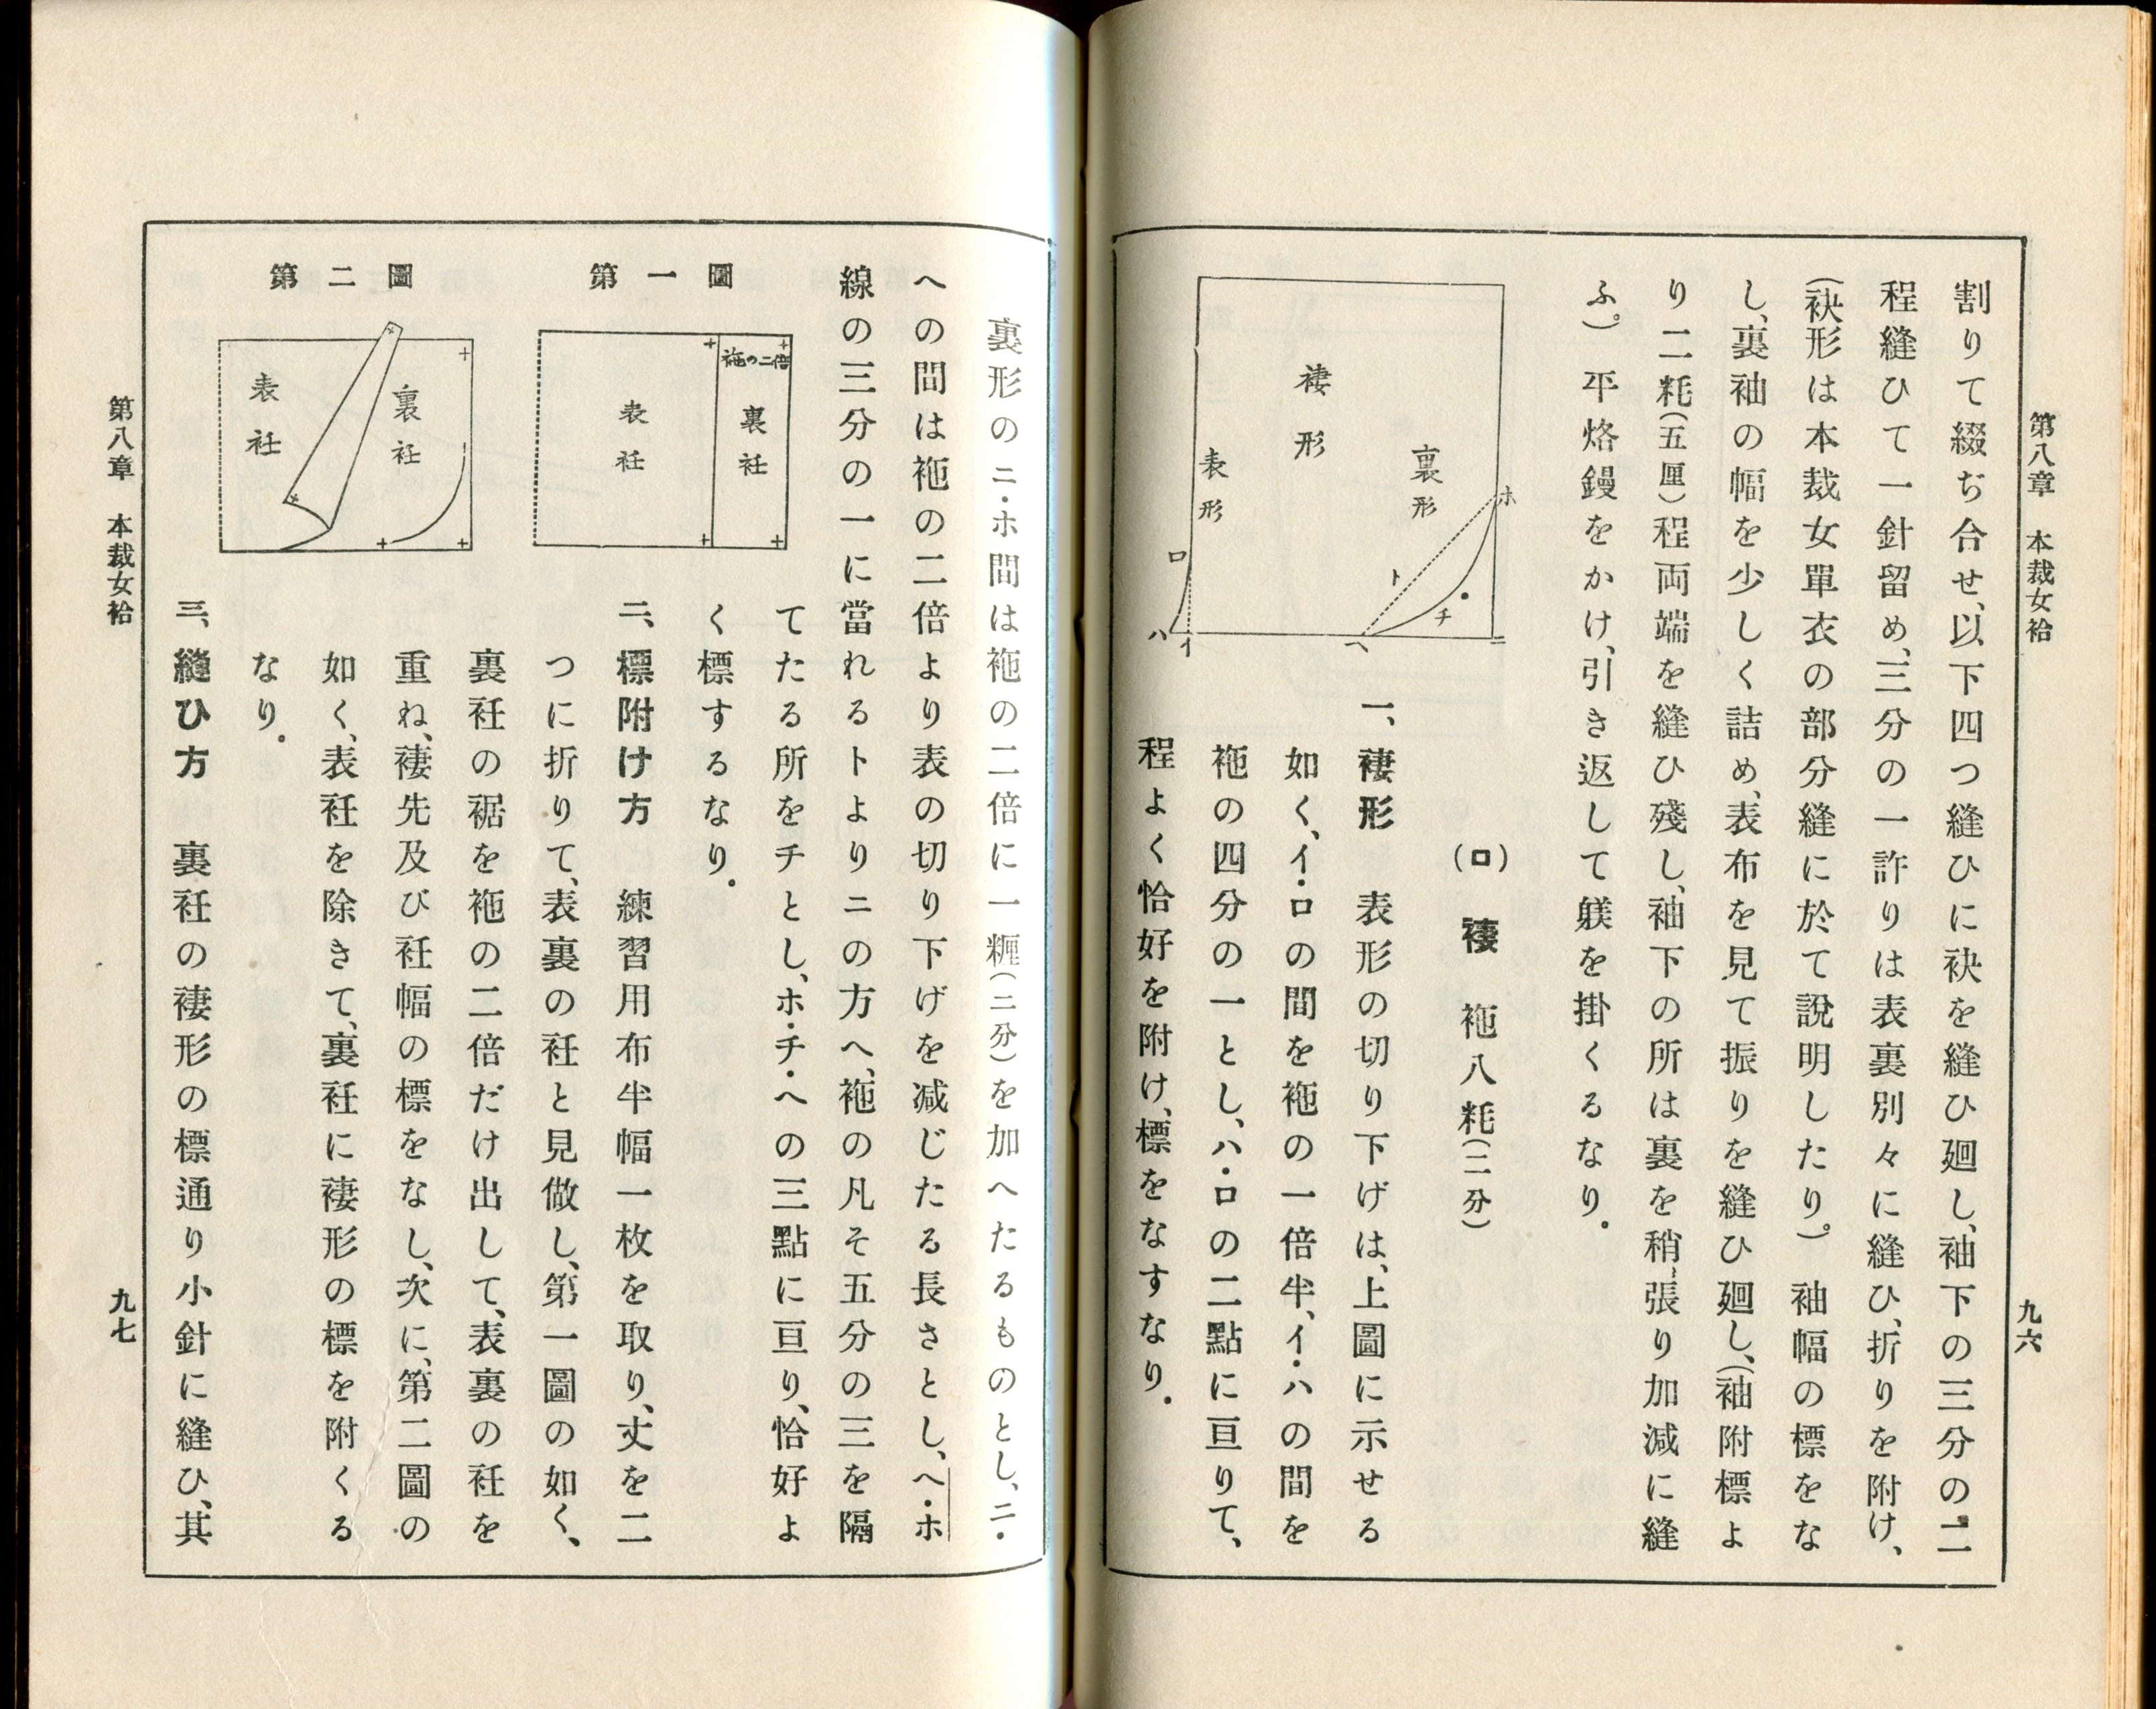 第八章　本裁女袷
九六
割りて綴ぢ合せ、以下四つ縫ひに袂を縫ひ廻し、袖下の三分の二
程縫ひて一針留め、三分の一許りは表裏別々に縫ひ、折りを附け、
(袂形は本裁女單衣の部分縫に於て說明したり。)　袖幅の標をな
し、裏袖の幅を少しく詰め、表布を見て振りを縫ひ廻し、(袖附標よ
り二粍(五厘)程両端を縫ひ殘し、袖下の所は裏を稍〻張り加減に縫
ふ。)　平烙鏝をかけ、引き返して躾を掛くるなり。
(ロ)　褄　袘八粍(二分)
褄形
裏形
表形
ホ
ト
チ
ニ
ヘ
ロ
ハ
イ
一、褄形　表形の切り下げは、上圖に示せる
如く、イ・ロの間を袘の一倍半、イ・ハの間を
袘の四分の一とし、ハ・ロの二點に亘りて、
程よく恰好を附け、標をなすなり。
裏形のニ・ホ間は袘の二倍に一糎(二分)を加へたるものとし、ニ・
への間は袘の二倍より表の切り下げを減じたる長さとし、ヘ・ホ
線の三分の一に當れるトよりニの方へ、袘の凡そ五分の三を隔
てたる所をチとし、ホ・チ・ヘの三點に亘り、恰好よ
く標するなり。
第一圖
袘の二倍
裏衽
表衽
第二圖
裏衽
表衽
二、標附け方　練習用布半幅一枚を取り、丈を二
つに折りて、表裏の衽と見做し、第一圖の如く、
裏衽の裾を袘の二倍だけ出して、表裏の衽を
重ね、褄先及び衽幅の標をなし、次に、第二圖の
如く、表衽を除きて、裏衽に褄形の標を附くる
なり。
三、縫ひ方　裏衽の褄形の標通り小針に縫ひ、其
第八章　本裁女袷
九七